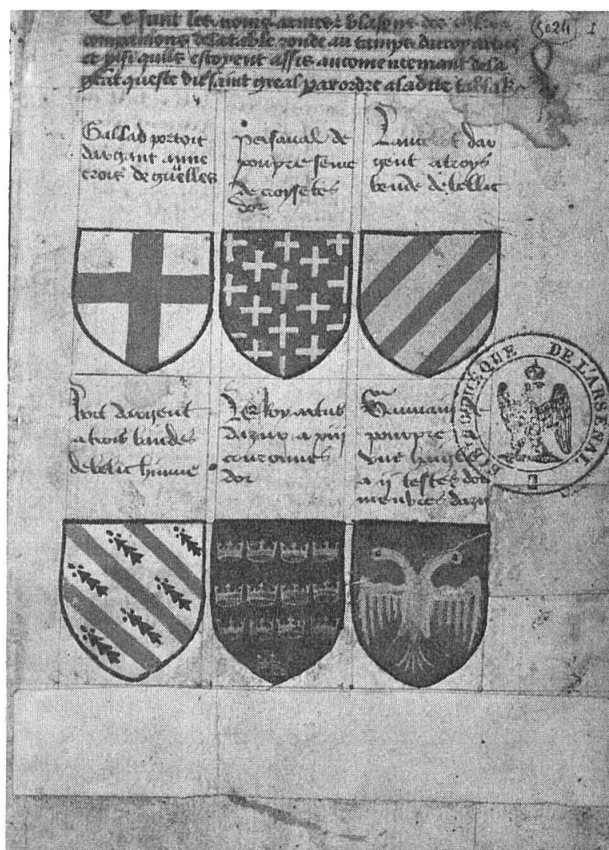 Ce sunt les noms armes & blasons des
compaignons de la table ronde au tamps du roy artus
et plsi quils estoyent assis au comencement de la
grant queste du saint greal par ordre a ladite table
5024
1
Gallad portoit
dargant anne
crois de guelles
persaval de
pourpre seme
de croysetes
dor
Lancelot dar
gent a troys
bende de bellic
Bort dargent
a trois bandes
de belic
Le Roy artus
dazur a xiij
couronnes
dor
Gauuain
pourpre
vne
a ij testes dor
menbres dazu
BIBLIOTHÈQUE DE L'ARSENAL